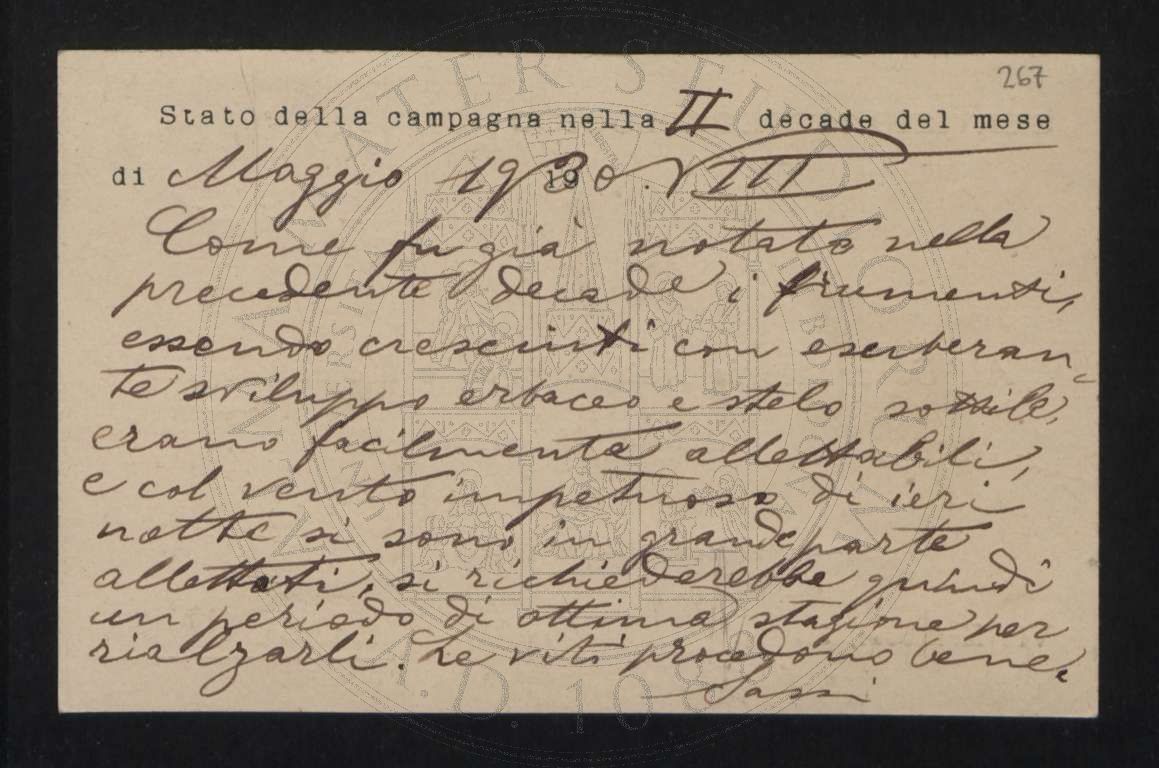 267
Stato della campagna nella II decade del mese
di Maggio 1930. VIII
Come fu già notato nella
precedente decade i frumenti,
essendo cresciuti con esuberan-
te sviluppo erbaceo e stelo sottile,
erano facilmente allettabili,
e col vento impetuoso di ieri
notte si sono in grande parte
allettati, si richiederebbe quindi
un periodo di ottima stagione per
rialzarli. Le viti procedono bene.
Sassi
ALMA MATER STUDIORUM
A.D. 1088